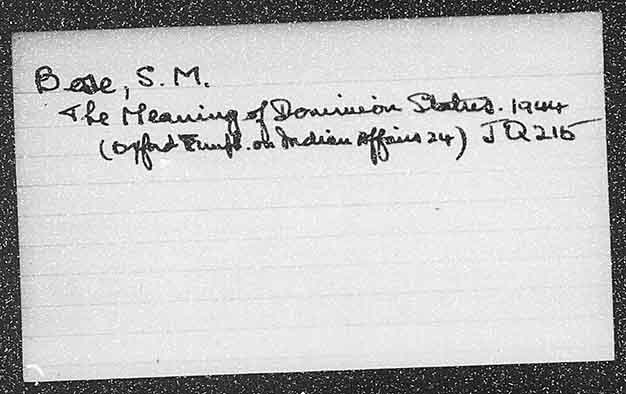 Bose, S.M.
The Meaning of Dominion Status. 1944
(Oxford Pamph. on Indian Affairs 24) JQ215